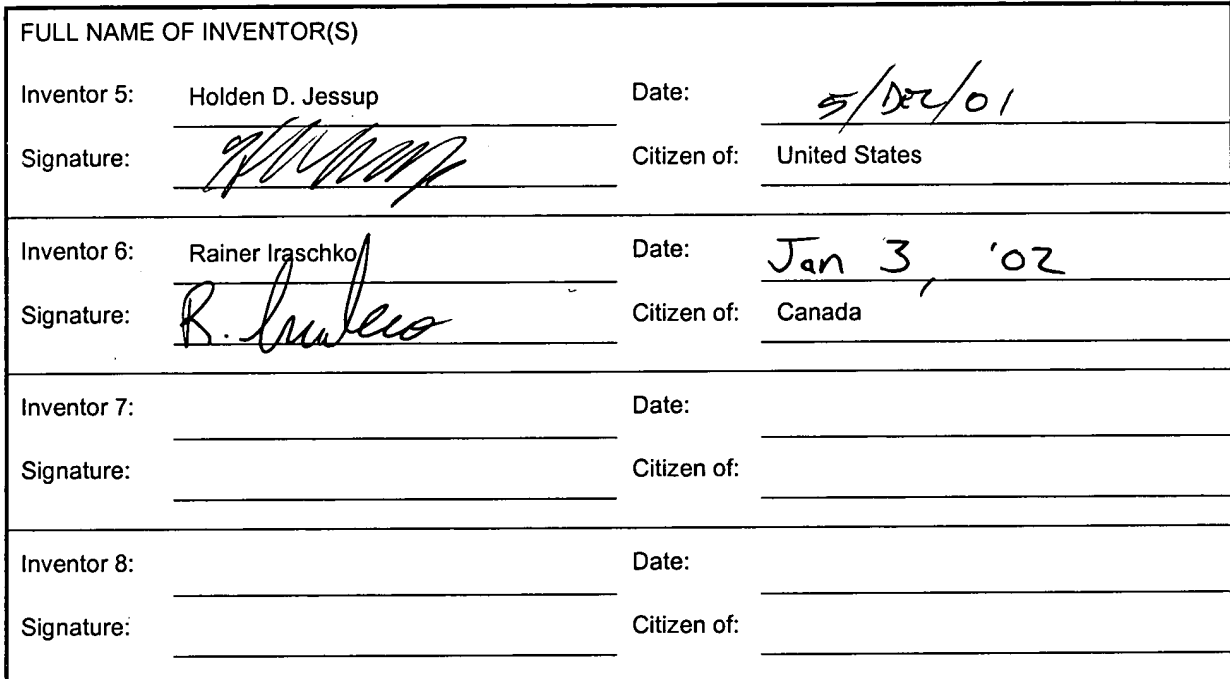 FULL NAME OF INVENTOR(S)
Inventor 5: Holden D. Jessup Date: 5/Dec/01
Signature: Citizen of: United States
Inventor 6: Rainer Iraschko Date: Jan 3, '02
Signature: R. Citizen of: Canada
Inventor 7: Date:
Signature: Citizen of:
Inventor 8: Date:
Signature: Citizen of: